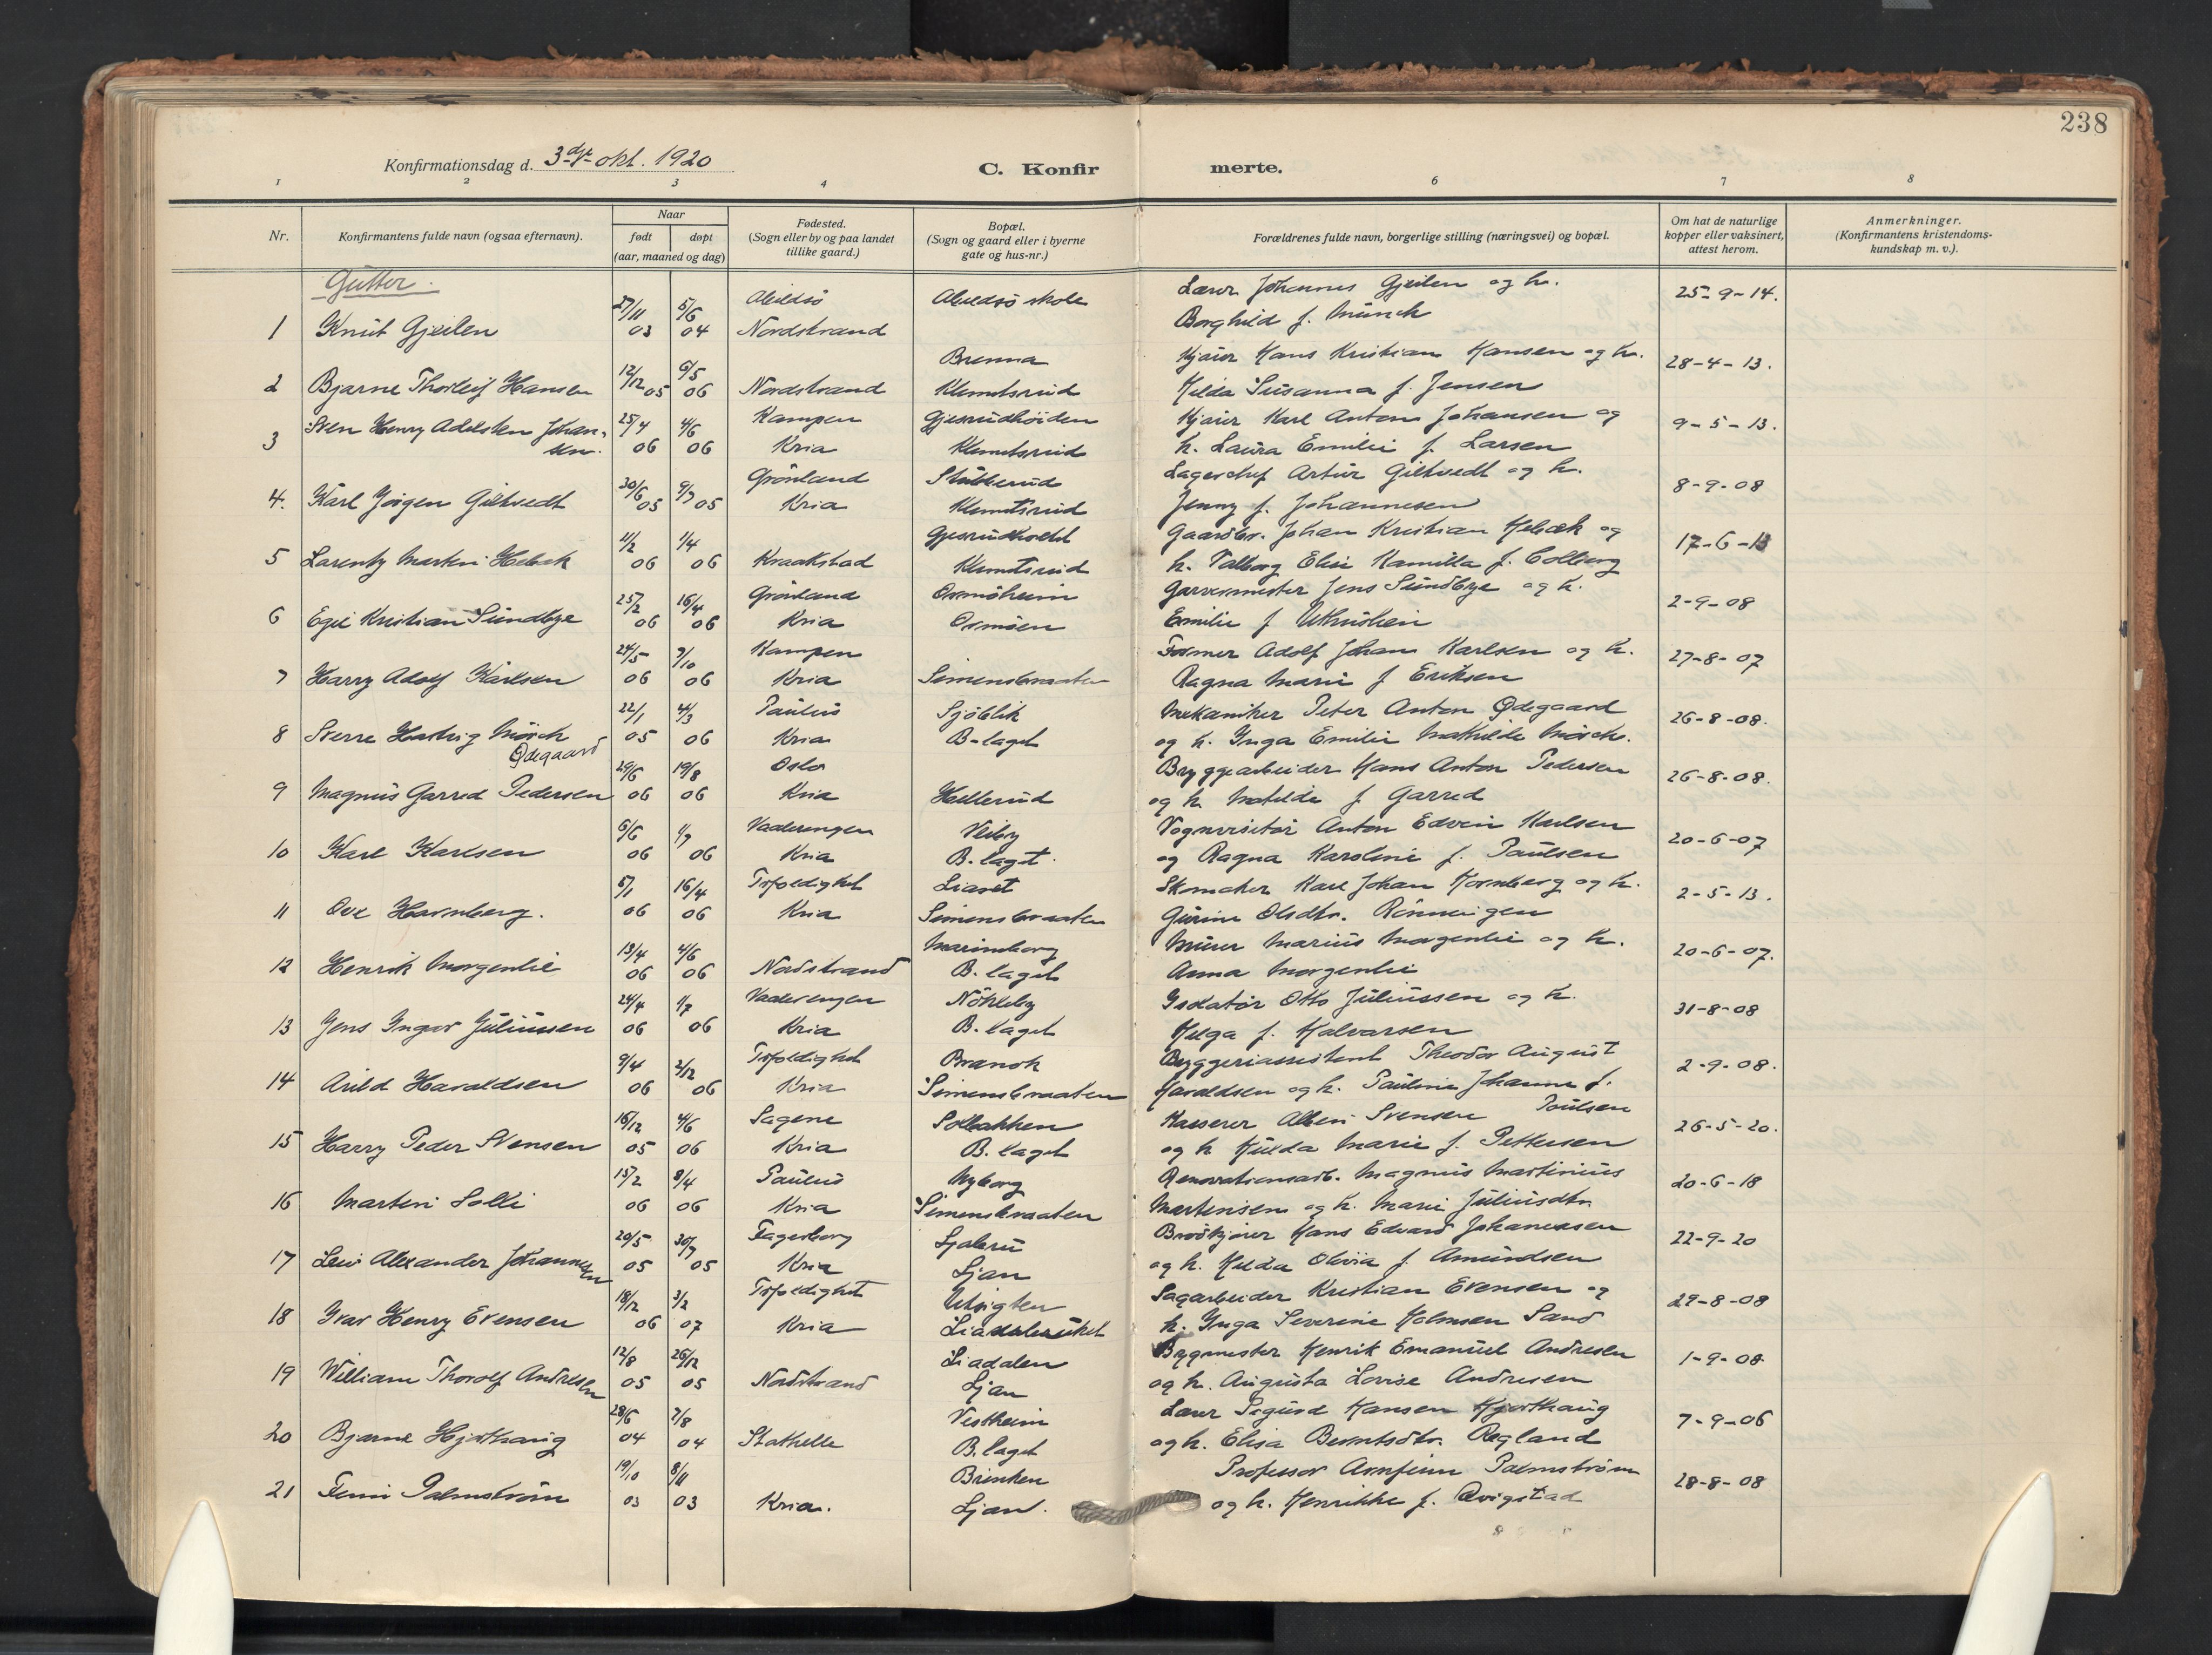 238
Konfirmationsdag d. 3dje okt. 1920
C. Konfir merte.
1 2 3 4 6 7 8
Nr. Konfirmantens fulde navn (ogsaa efternavn). Naar født døpt (aar, maaned og dag) Fødested. (Sogn eller by og paa landet tillike gaard.) Bopæl. (Sogn og gaard eller i byerne gate og hus-nr.) Forældrenes fulde navn, borgerlige stilling (næringsvei) og bopæl. Om hat de naturlige kopper eller vaksinert, attest herom. Anmerkninger. (Konfirmantens kristendoms-kundskap m. v.).
Gutter.
27/11 5/6 Abildsö Abildsö skole Lærer Johannes Gjeilen og h. 25-9-14.
1 Knut Gjeilen 03 04 Nordstrand Borghild f. Munch
12/12 6/5 Brenna Kjører Hans Kristian Hansen og h. 28-4-13.
2 Bjarne Thorleif Hansen 05 06 Nordstrand Klemetsrud Hilda Susanna f. Jensen
25/4 4/6 Kampen Gjersrudhøiden Kjører Karl Anton Johansen og 9-5-13.
3 Sven Henry Adelsten Johansen. 06 06 Kria Klemetsrud h. Laura Emilie f. Larsen
30/6 9/7 Grönland Stubberud Lagerchef Artur Giltvedt og h. 8-9-08
4. Karl Jörgen Giltvedt 05 05 Kria Klemetsrud Jenny f. Johannesen
11/2 1/4 Gjersrud Gaardbr. Johan Kristian Hebæk og 17-6-13
5 Larentz Martin Hebek 06 06 Kraakstad Klemetsrud h. Valborg Elise Kamilla f. Colberg
25/2 16/4 Grönland Ormöheim Garvermester Jens Sundbye og h. 2-9-08
6 Egil Kristian Sundbye 06 06 Kria Ormöen Emilie f
24/5 7/10 Kampen Former Adolf Johan Karlsen og h. 27-8-07
7 Harry Adolf Karlsen 06 06 Kria Simensbraaten Ragna Marie f Eriksen
22/1 4/3 Paulus Sjöblik Mekaniker Peter Anton Ødegaard 26-8-08.
8 Sverre Hartvig Mörch Ødegaard 05 06 Kria B-laget og h. Inga Emilie Mathilde Mörch.
29/6 19/8 Oslo Bryggearbeider Hans Anton Pedersen 26-8-08.
9 Magnus Garred Pedersen 06 06 Kria Hellerud og h Matilde f Garred
6/6 1/7 Vaalerengen Veiby Vognvisitör Anton Edvin Karlsen 20-6-07
10 Karl Karlsen 06 06 Kria B. laget. og Ragna Karoline f. Paulsen
5/1 16/4 Trefoldighet Liaset Skomaker Karl Johan Hornberg og h. 2-5-13.
11 Ove Hornberg. 06 06 Kria Simensbraaten Gurine Olsdtr. Rönningen
13/4 4/6 Marienborg Murer Marius Morgenlie og h. 20-6-07.
12 Henrik Morgenlie 06 06 Nordstrand B. laget Anna Morgenlie
24/4 1/7 Vaalerengen Nökleby Isolatör Otto Juliussen og h. 31-8-08
13 Jens Ingvar Juliussen 06 06 Kria B. laget Helga f. Halvorsen
9/4 2/12 Trefoldighet Branok Bryggeriassistent Theodor August 2-9-08.
14 Arild Haraldsen 06 06 Kria Simensbraaten Haraldsen og h. Pauline Johanne f. Poulsen
16/12 4/6 Sagene Solbakken Kasserer Albin Svensen 26-5-20.
15 Harry Peder Svensen 05 06 Kria B. laget og h Hulda Marie f. Pettersen
15/2 8/4 Paulus Nyborg Renovationsarb. Magnus Martinius 20-6-18
16 Martin Solli 06 06 Kria Simensbraaten Martinsen og h. Marie Juliusdtr.
20/5 30/7 Fagerborg Ljabru Brödkjører Hans Edvard Johannessen 22-9-20
17 Leiv Alexander Johannessen 05 05 Kria Ljan og h. Hilda Olivia f. Amundsen
18/12 3/2 Trefoldighet Utsigten Sagarbeider Kristian Evensen og 29-8-08
18 Ivar Henry Evensen 06 07 Kria Liadalbruket h. Inga Severine Holmsen Sand
12/8 26/12 Liadalen Bygmester Henrik Emanuel Andresen 1-9-08
19 William Thorolf Andresen 05 05 Nordstrand Ljan og h. Augusta Lovise Andresen
28/6 7/8 Vestheim Lærer Sigurd Hansen Hjorthaug 7-9-06
20 Bjarne Hjorthaug 04 04 Stathelle B. laget og h. Elisa Berntsdtr. Rægland
19/10 8/11 Brinken Professor Arnfinn Palmström 28-8-08
21 Finn Palmström 03 03 Kria. Ljan. og h. Henrikke f. Qvigstad